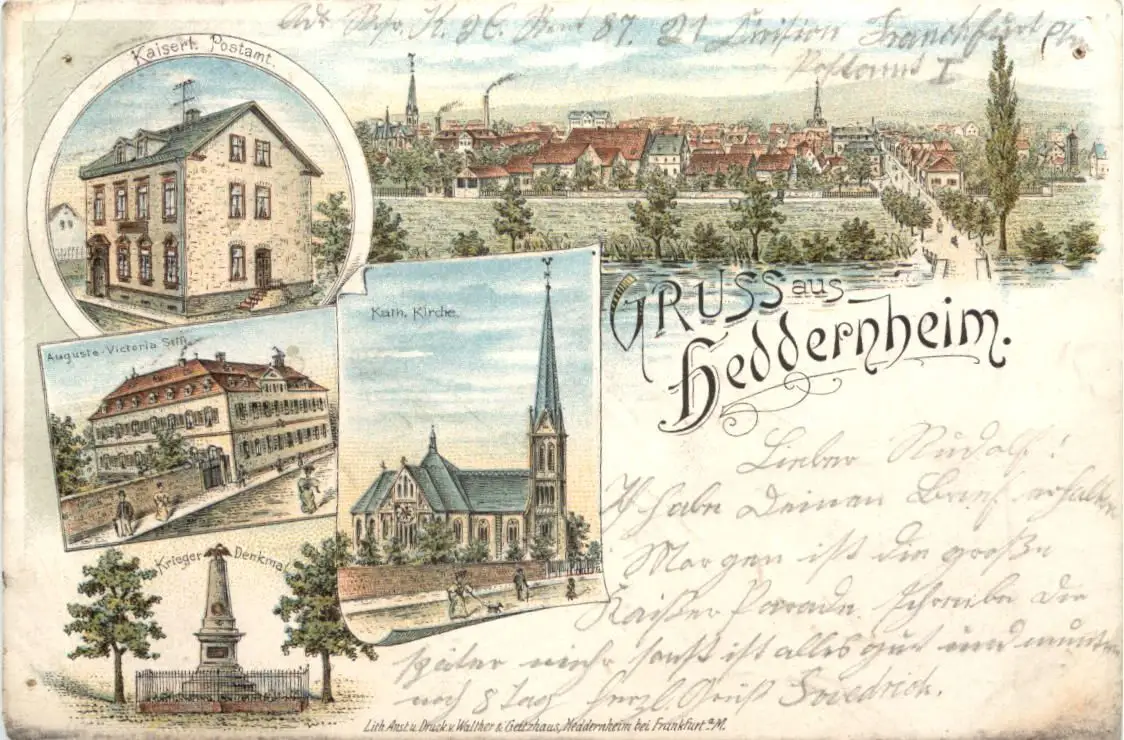 Adr. K. 26. Rmt 87. 21 Division Franckfurt
Postamt I
Kaiserl. Postamt.
Auguste-Victoria Stift.
Kath. Kirche.
Krieger Denkmal
GRUSS aus
Heddernheim.
Lieber Rudolf!
Ich habe Deinen Brief erhalten
Morgen ist die große
Kaißer Parade schreibe Dir
später mehr sonst ist alles gut und munter
noch 8 Tag herzl. Gruß Friedrich.
Lith. Anst. u. Druck v. Walther & Geltzhaus, Heddernheim bei Frankfurt a/M.